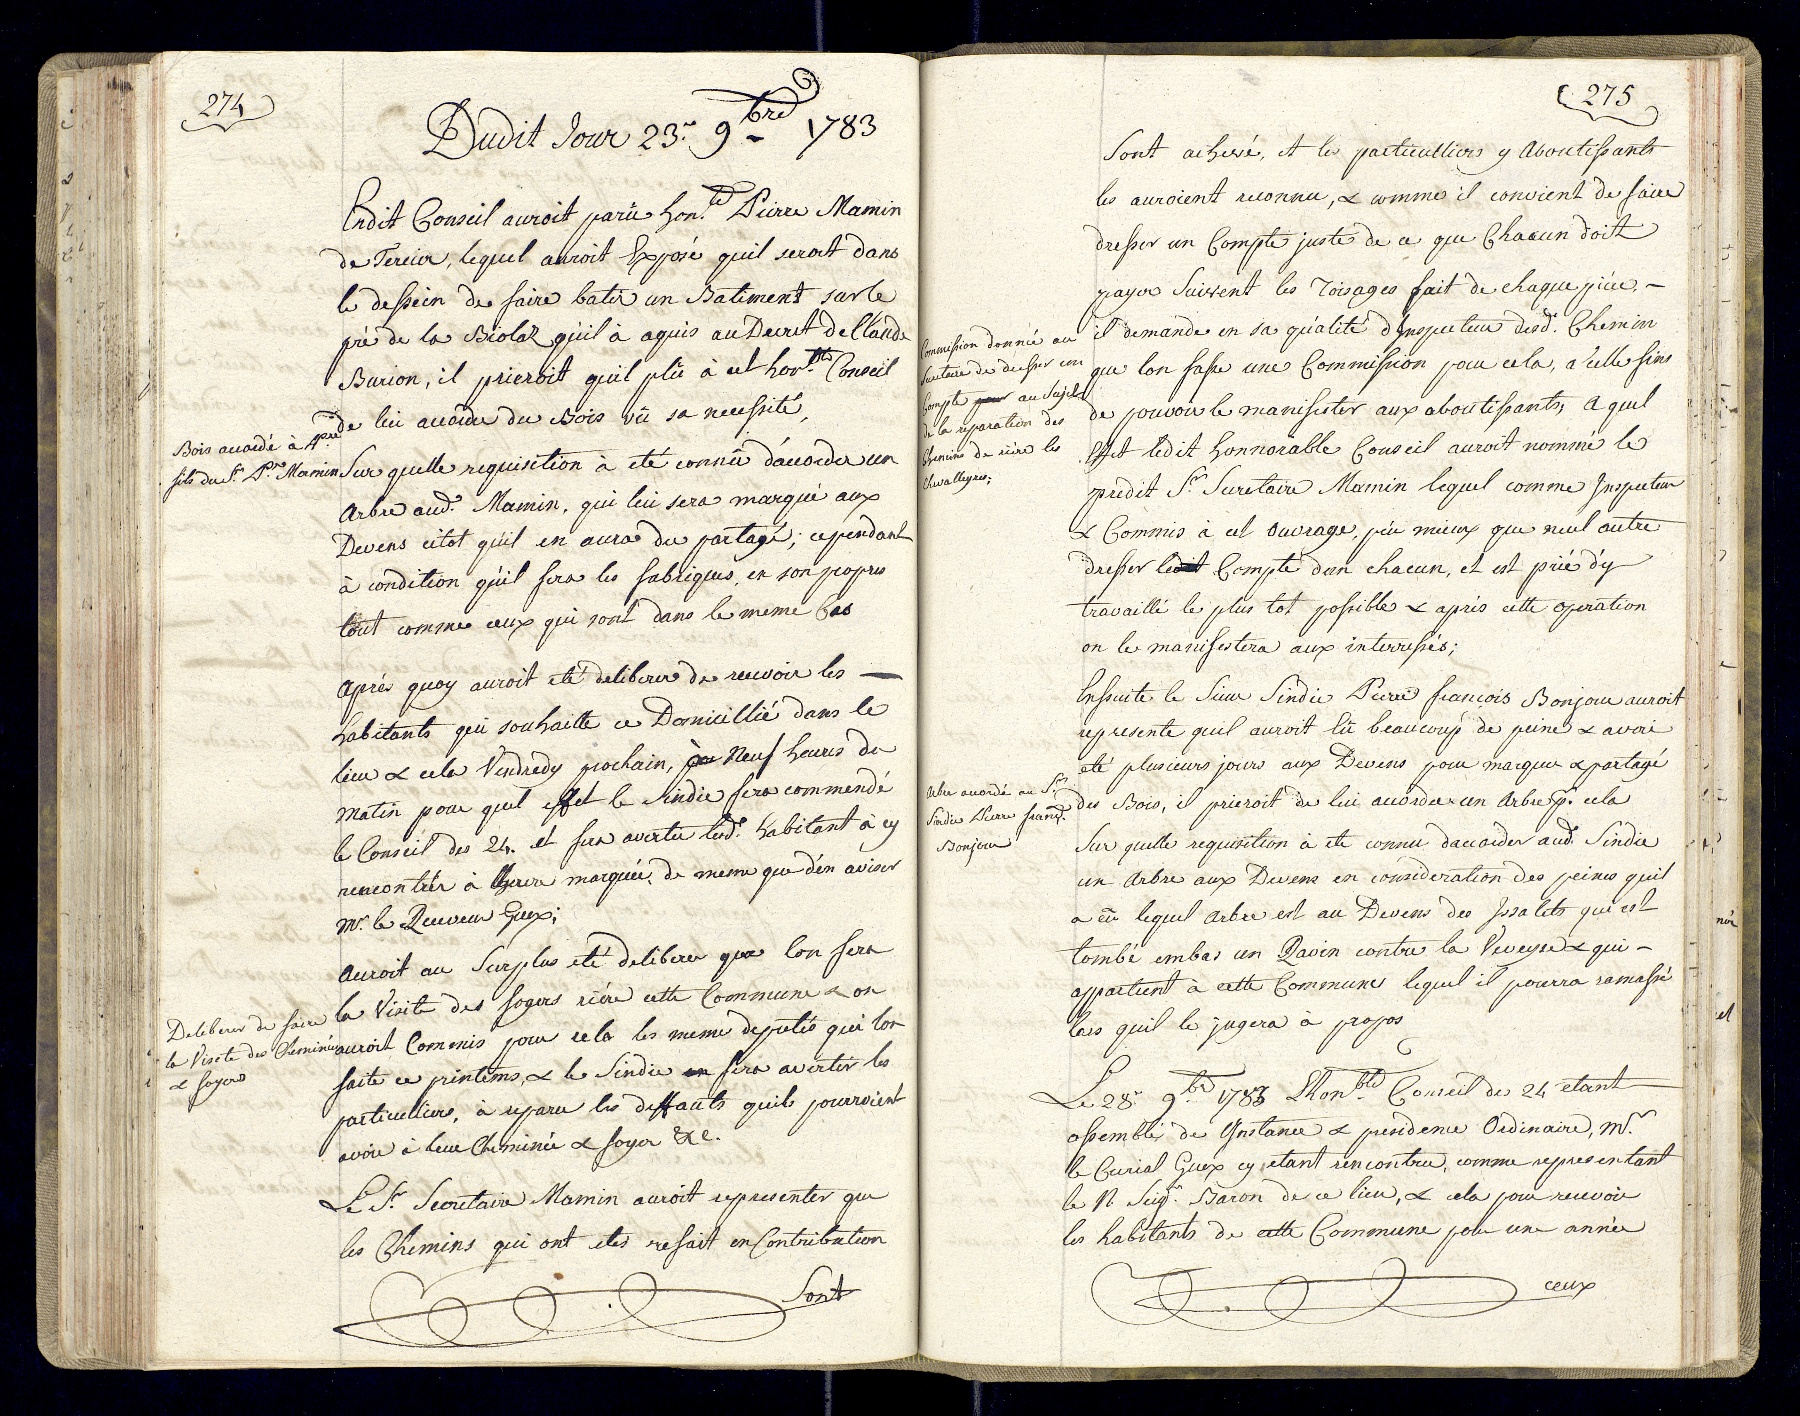 274
Dudit Jour 23.e 9bre 1783
Endit Conseil auroit parû hon.té Pierre Mamin
de Tercier, lequel auroit Exposé quil seroit dans
le dessein de faire batir un Batiment sur le
pré de la Biolaz qu'il à aquis au Decret de Claude
Burion, il prieroit quil plû à cet hon.ble Conseil
de lui accorder du Bois vû sa necessité,
Bois accordé à hpre
fils du Sr. Pre. Mamin
Sur quelle requisition à eté connû d'accorder un
Arbre aud.t Mamin, qui lui sera marqué aux
Devens citot qu'il en aura du partagé; cependant
à condition qu'il fera les fabriques, en son propre
tout comme ceux qui sont dans le meme Cas
Après quoy auroit eté deliberer de recevoir les —
habitants qui souhaitte ce Domicillié dans le
lieu & cela Vendredy prochain, à Neuf heures du
matin pour quel effet le Sindic fera commendé
le Conseil des 24. et fera avertir lesd.t habitant à cy
rencontrer à lheure marquée, de meme que d'en aviser
Mr. le Receveur Guex;
Auroit au Surplus eté deliberer que lon fera
Deliberer de faire
la Visite des Cheminée
& foyers
la Visite des foyers rière cette Commune & on
auroit Commis pour cela les meme deputés qui lon
faite ce printems, & le Sindic fera avertir les
particulliers, à reparer les deffauts quils pourroient
avoir à leur Cheminée & foyer &c.
Le Sr. Secretaire Mamin auroit representer que
les Chemins qui ont etes refait en Contribution
Sont
275
Sont achevé, et les particulliers y Aboutissants
les auroient reconnu, & comme il convient de faire
dresser un Compte juste de ce que Chacun doit
payer Suivent les Toisages fait de chaque piece, —
il demande en sa qualité d'Inspecteur desd.t Chemin
Commission donnée au
Secretaire de dresser un
Compte au Sujet
de la reparation des
Chemins de rière les
Chevalleyres;
que lon fasse une Commission pour cela, a celle fins
de pouvoir le manifester aux aboutissants, A quel
Effet ledit honnorable Conseil auroit nommé le
predit Sr. Secretaire Mamin lequel comme Inspecteur
& Commis à cet ouvrage, peu mieux que neul autre
dresser le Compte dun chacun, et est prié d'y
travaillé le plus tot possible & après cette operation
on le manifestera aux interressés;
Enssuite le Sieur Sindic Pierre François Bonjour auroit
representé quil auroit lû beaucoup de peine & avoir
eté plusieurs jours aux Devens pour marquer & partagé
Arbre accordé au Sr.
Sindic Pierre franç.s
Bonjour
des Bois, il prieroit de lui accorder un Arbre p.r cela
Sur quelle requisition à ete connu daccorder aud.t Sindic
un Arbre aux Devens en consideration des peines quil
a eû lequel arbre est au Devens des Issalets qui est
tombé embas un Ravin contre la Veveyse & qui —
appartient à cette Commune lequel il pourra ramassé
lors quil le jugera à propos
Le 28.e 9bre 1783 Lhon.ble Conseil des 24 etant
assemblé de Instance & presidence Ordinaire, Mr.
le Curial Guex cy etant rencontrer, comme representant
le N Seig.r Baron de ce lieu, & cela pour recevoir
les habitants de cette Commune pour une année
ceux